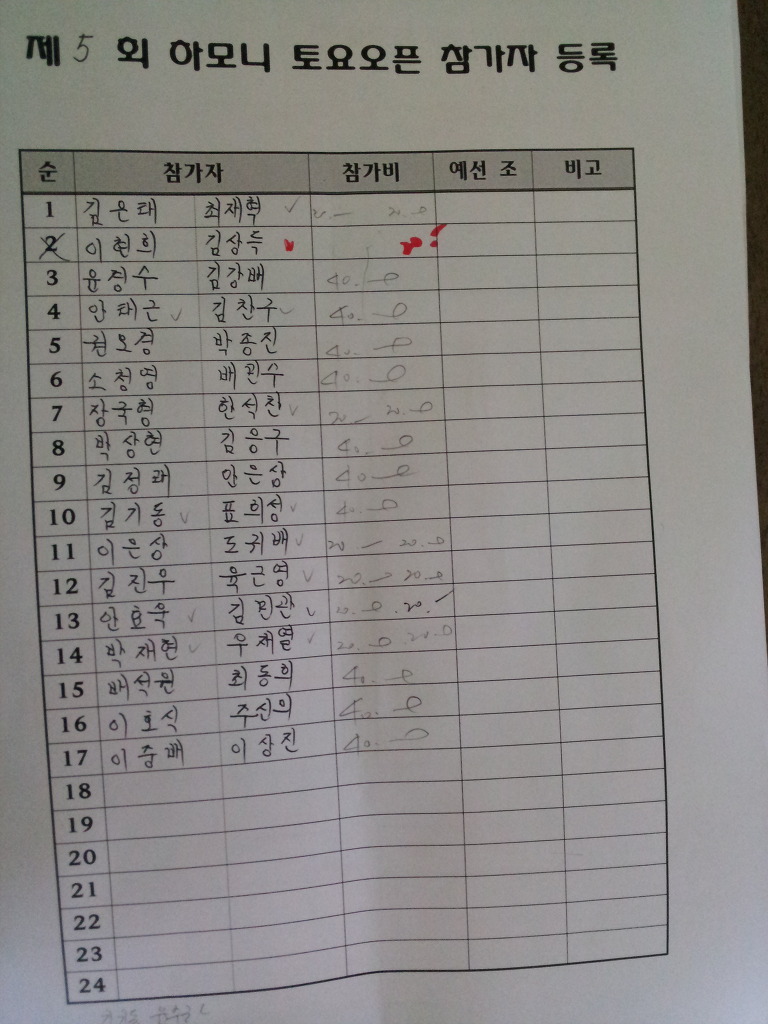 제 5 회 하모니 토요오픈 참가자 등록
순 참가자 참가비 예선 조 비고
1 김은태 최재혁 20.- 20.0
2 이현희 김상득
3 윤정수 김강배 40.-0
4 안태근 김찬구 40.-0
5 권오경 박종진 40.-0
6 소청영 배진수 40.-0
7 장국형 한석찬 20.- 20.0
8 박상현 김응구 40.-0
9 김정래 안은삼 40.-0
10 김기동 표희성 40.-0
11 이은상 도귀배 20.- 20.0
12 김진우 육근영 20.-0 20.0
13 안효욱 김진관 20.0 20.-
14 박재현 우재열 20.0 20.0
15 배석원 최동희 40.-0
16 이호식 주신의 40.-0
17 이중배 이상진 40.-0
18
19
20
21
22
23
24